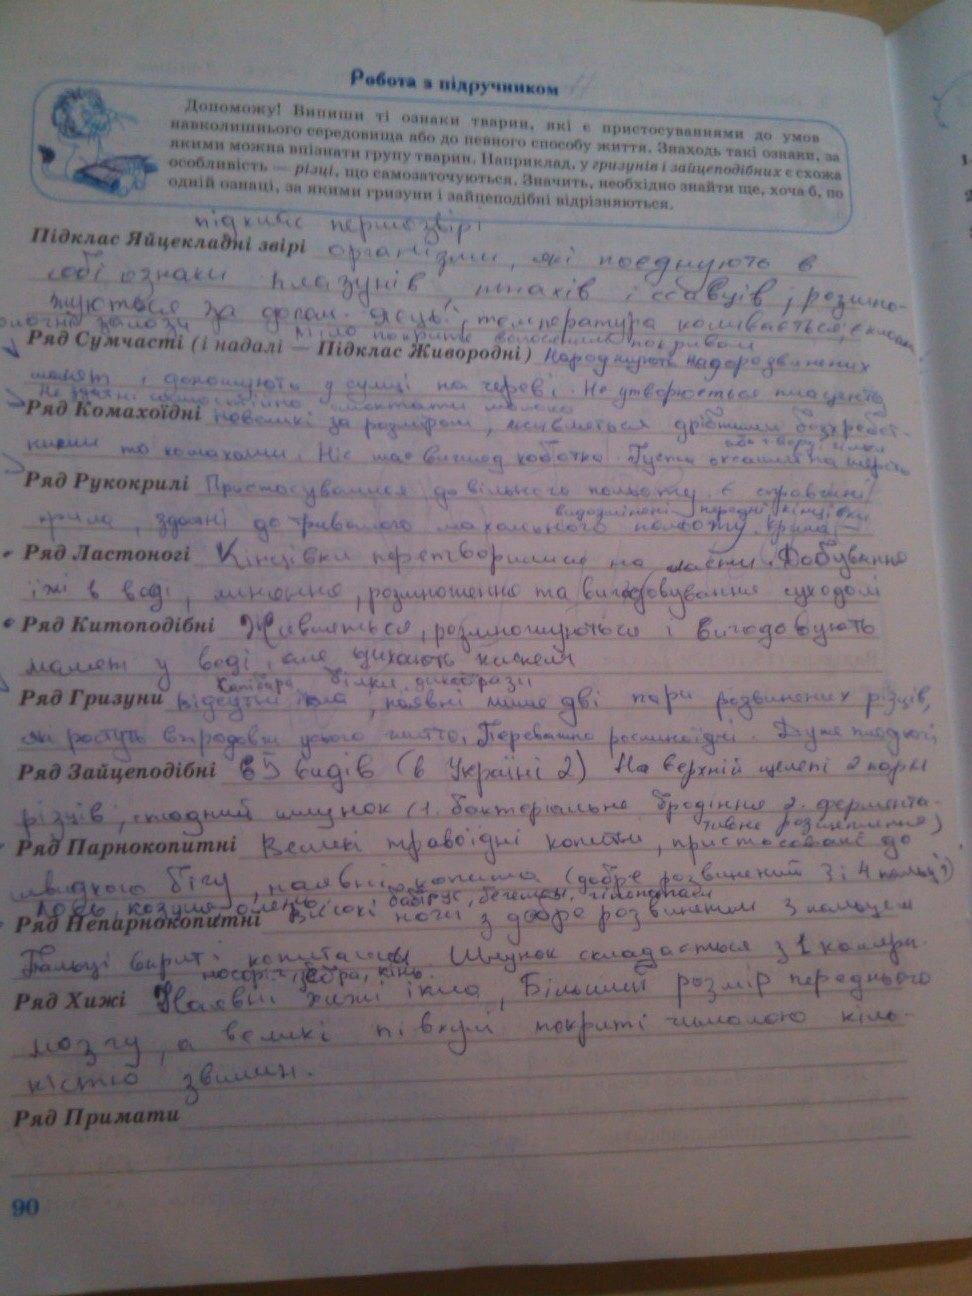 Робота з підручником
Допоможу! Випиши ті ознаки тварин, які є пристосуваннями до умов
навколишнього середовища або до певного способу життя. Знаходь такі ознаки, за
якими можна впізнати групу тварин. Наприклад, у гризунів і зайцеподібних є схожа
особливість — різці, що самозаточуються. Значить, необхідно знайти ще, хоча б, по
одній ознаці, за якими гризуни і зайцеподібні відрізняються.
підклас першозвірі
Підклас Яйцекладні звірі організми, які поєднують в
собі ознаки плазунів, птахів і ссавців, розмно-
жуються за допом. яєць, температура коливається, є
залози міло покрите волосяним покривом
Ряд Сумчасті (і надалі — Підклас Живородні) Народжують недорозвинених
малят, доношують у сумці на череві. Не утворюється плацента
Не здатні самостійно смоктати молоко
Ряд Комахоїдні невеликі за розміром, живляться дрібними безхребет-
ними та комахами. Ніс має вигляд хоботка. Густа оксамитна шерсть
Ряд Рукокрилі Пристосувалися до вільного польоту. є справжні
видозмінені передні кінцівки
крила, здатні до тривалого махального польоту. крила
Ряд Ластоногі Кінцівки перетворилися на ласти. Добування
їжі в воді, линяння, розмноження та вигодовування суходолі
Ряд Китоподібні Живляться, розмножуються і вигодовують
малят у воді, але дихають киснем
Капібара білки, дикобрази
Ряд Гризуни відсутні ікла, наявні лише дві пари розвинених різців,
які ростуть впродовж усього життя. Переважно рослиноїдні. Дуже плодючі
Ряд Зайцеподібні 65 видів (в Україні 2) На верхній щелепі 2 пари
різців, складний шлунок (1. бактеріальне бродіння 2. фермента-
тивне розщеплення)
Ряд Парнокопитні Великі травоїдні копитні, пристосовані до
швидкого бігу, наявні копита (добре розвинений 3 і 4 пальці)
Лось, козуля, олень, бабірус, бегемот, гіпопотам
Ряд Непарнокопитні Високі ноги з добре розвиненим 3 пальцем
Пальці вкриті копитами Шлунок складається з 1 камери.
носоріг, зебра, кінь.
Ряд Хижі Наявні хижі ікла, Більший розмір переднього
мозгу, а великі півкулі покриті чималою кіль-
кістю звилин.
Ряд Примати
90